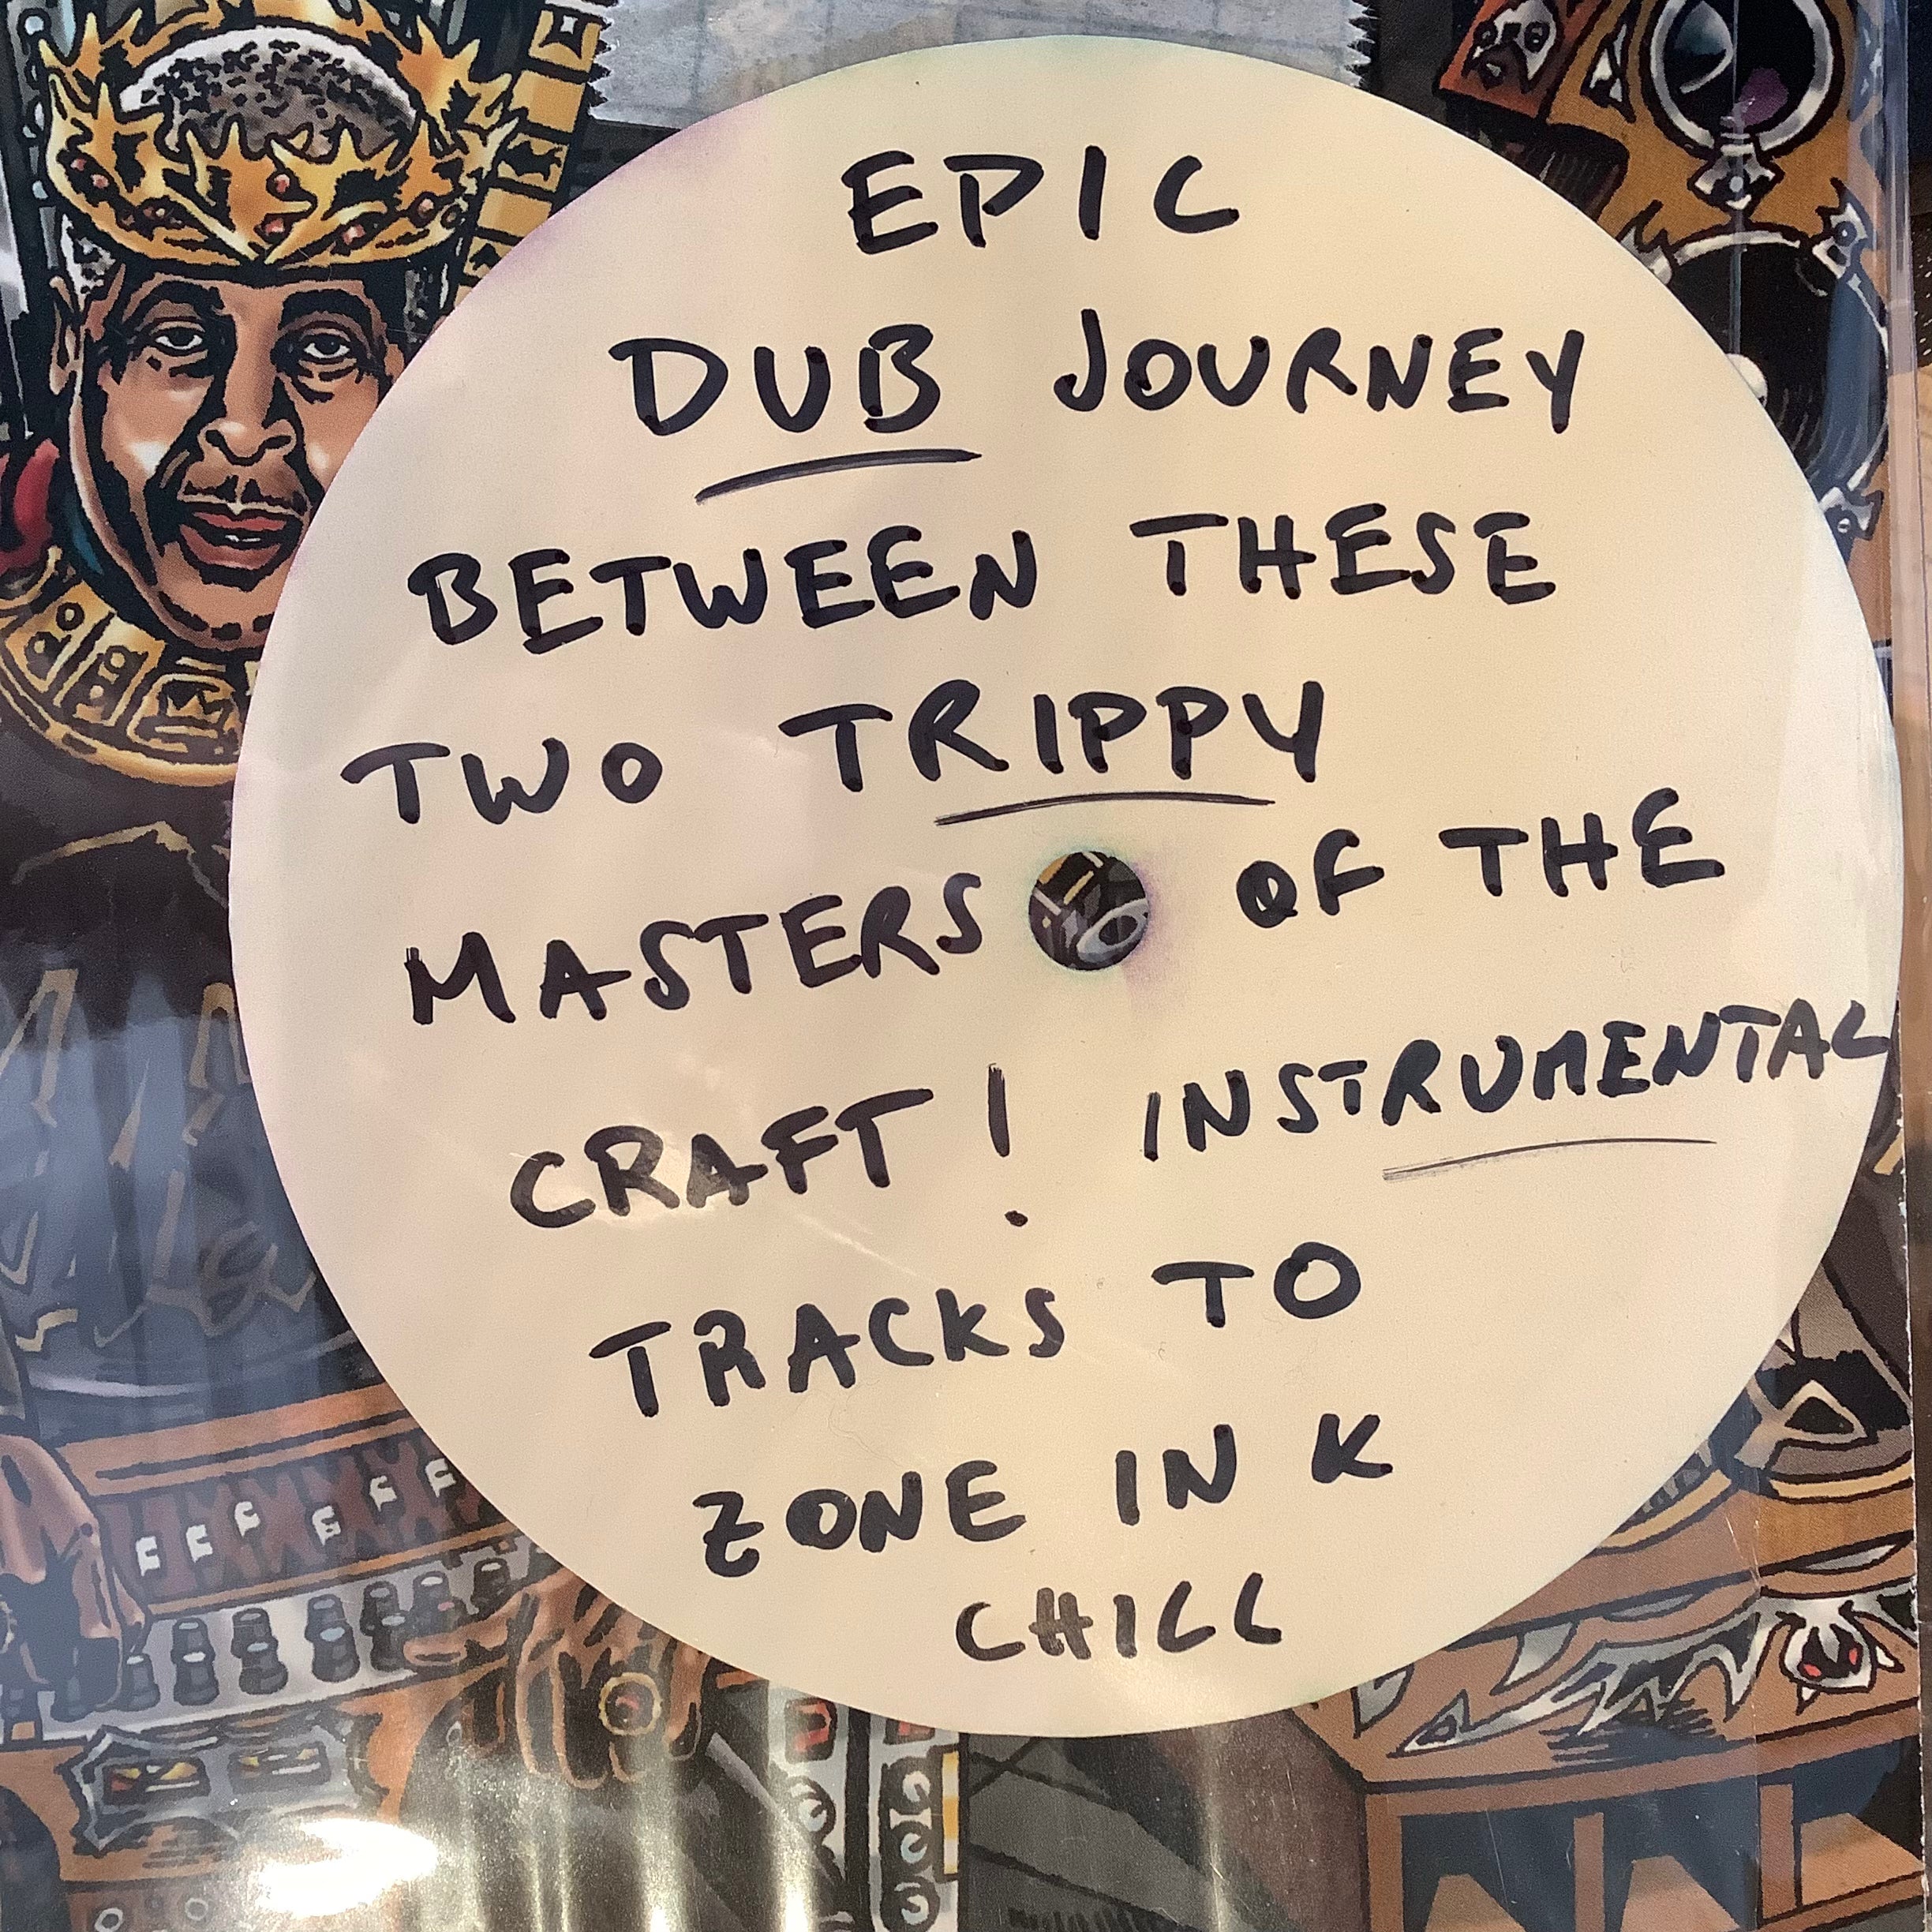 EPIC
DUB JOURNEY
BETWEEN THESE
TWO TRIPPY
MASTERS OF THE
CRAFT! INSTRUMENTAL
TRACKS TO
ZONE IN K
CHILL